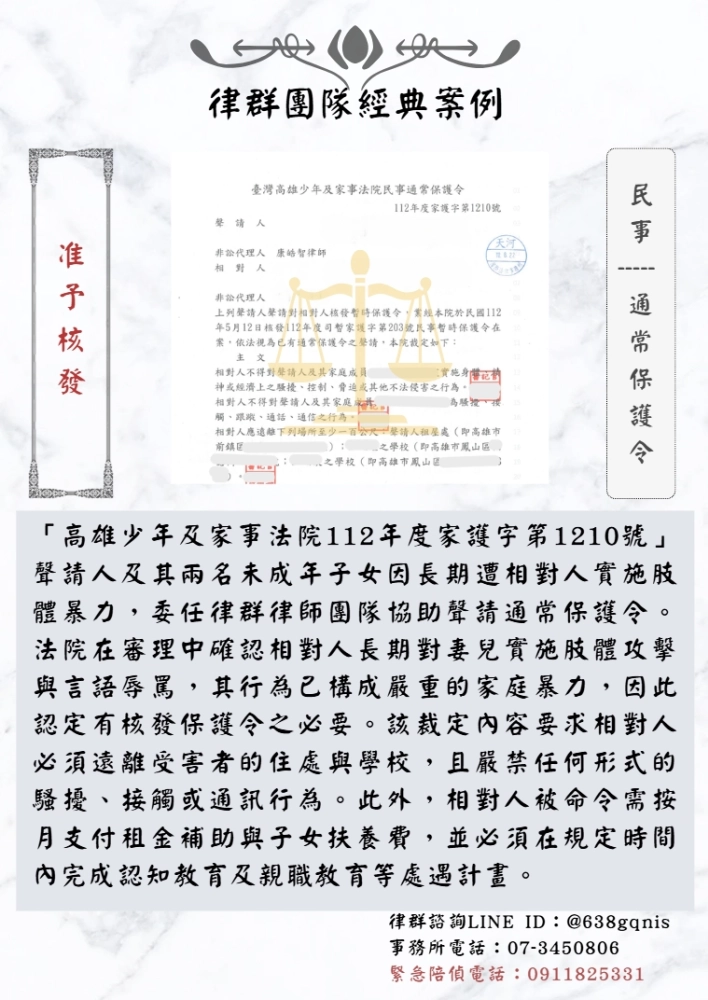 律群團隊經典案例
准予核發
臺灣高雄少年及家事法院民事通常保護令
112年度家護字第1210號
聲請人
非訟代理人 康皓智律師
相對人
非訟代理人
上列聲請人聲請對相對人核發暫時保護令,業經本院於民國112
年5月12日核發112年度司暫家護字第203號民事暫時保護令在
案,依法視為已有通常保護令之聲請,本院裁定如下:
主文
相對人不得對聲請人及其家庭成員 實施身體、精
神或經濟上之騷擾、控制、脅迫或其他不法侵害之行為。
相對人不得對聲請人及其家庭成員 為騷擾、接
觸、跟蹤、通話、通信之行為。
相對人應遠離下列場所至少一百公尺:聲請人租屋處(即高雄市
前鎮區 ); 之學校(即高雄市鳳山區
); 之學校(即高雄市鳳山區
)。
天河
民事-----通常保護令
「高雄少年及家事法院112年度家護字第1210號」
聲請人及其兩名未成年子女因長期遭相對人實施肢
體暴力,委任律群律師團隊協助聲請通常保護令。
法院在審理中確認相對人長期對妻兒實施肢體攻擊
與言語辱罵,其行為已構成嚴重的家庭暴力,因此
認定有核發保護令之必要。該裁定內容要求相對人
必須遠離受害者的住處與學校,且嚴禁任何形式的
騷擾、接觸或通訊行為。此外,相對人被命令需按
月支付租金補助與子女扶養費,並必須在規定時間
內完成認知教育及親職教育等處遇計畫。
律群諮詢LINE ID:@638gqnis
事務所電話:07-3450806
緊急陪偵電話:0911825331